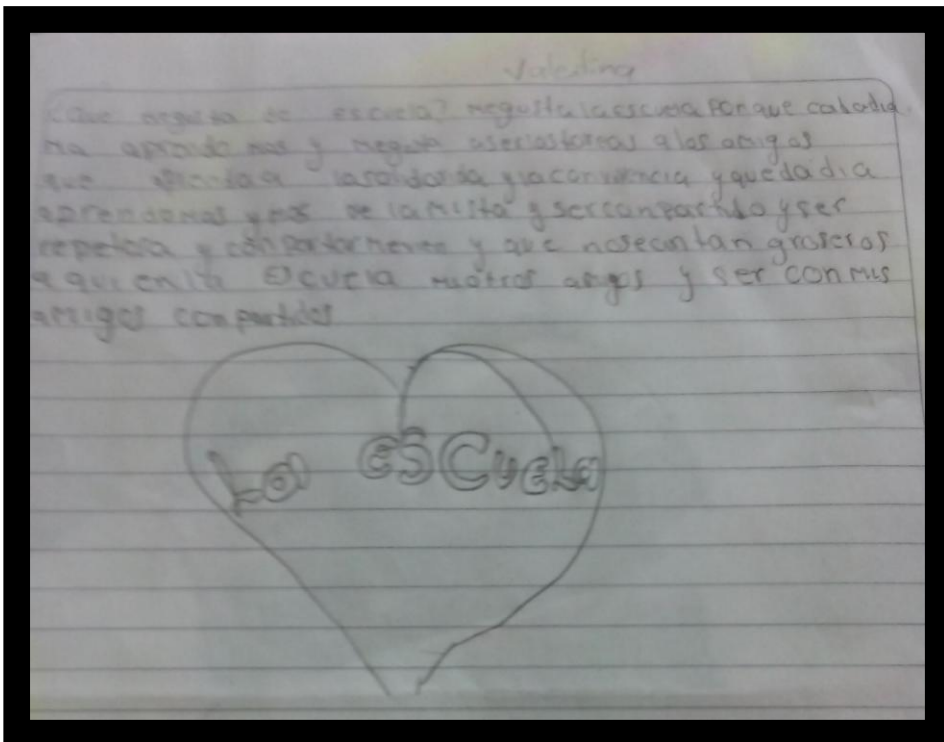 Valentina
¿Que megusta de escuela? megusta la escuela porque cada dia
ma aprendo mas y megusta aserlastareas a los amigos
que la y la convivencia y que dadia
aprendomas y de la y ser conpartido y ser
repetosa y y que no secuntan groseros
aqui en la Escuela amgos y ser con mis
amigos conpartidos
La escuela